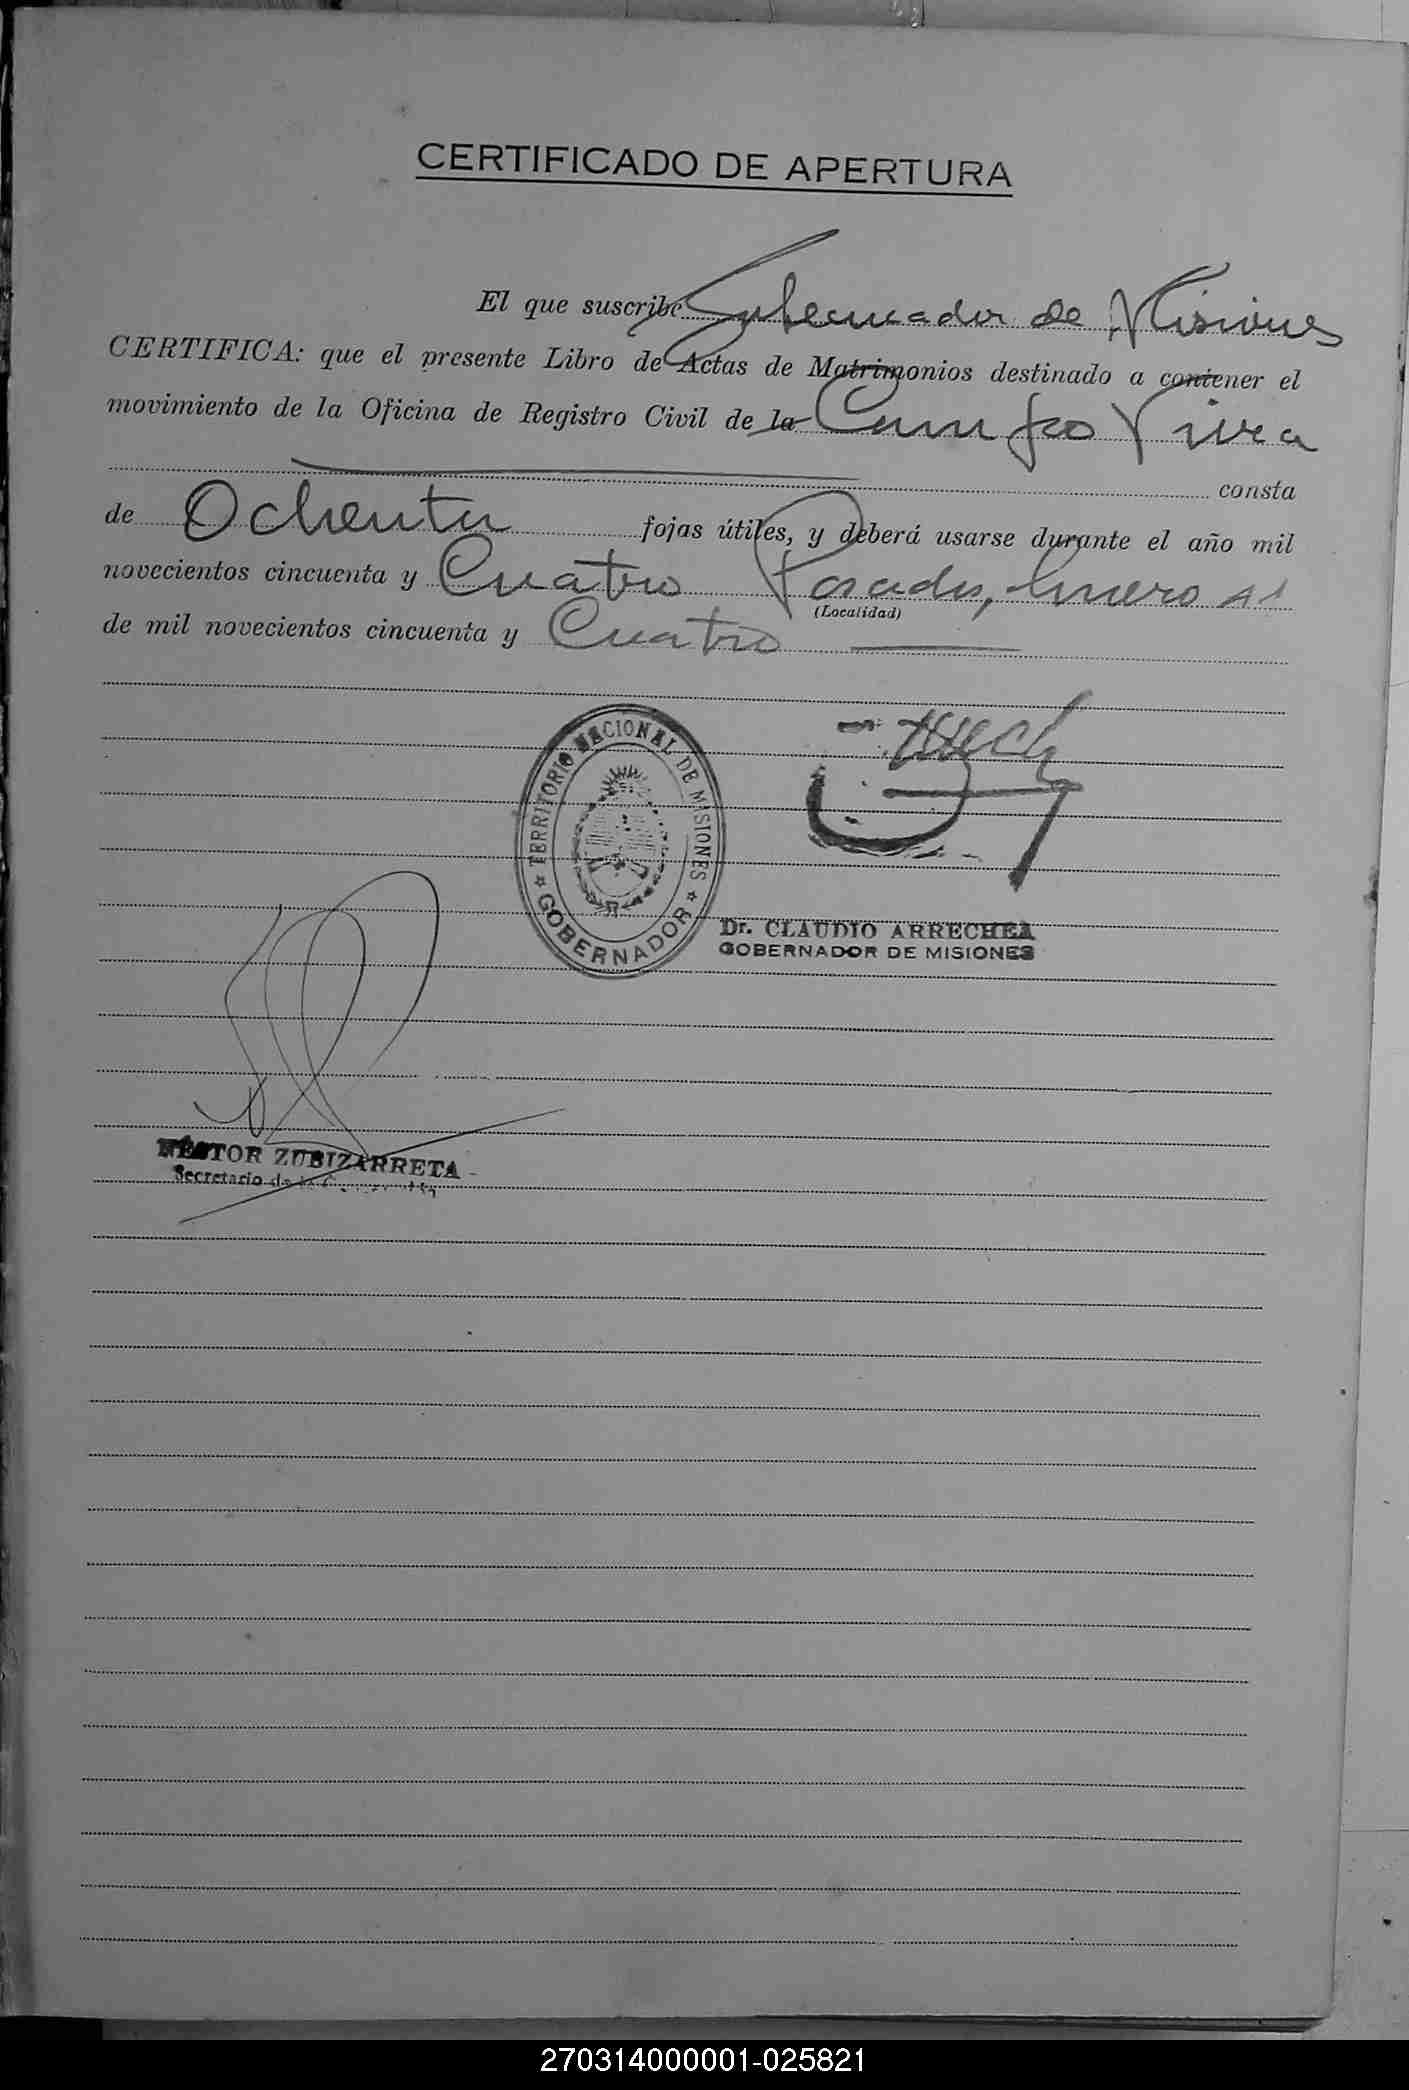 CERTIFICADO DE APERTURA
El que suscribe Gobernador de Misiones
CERTIFICA: que el presente Libro de Actas de Matrimonios destinado a contener el
movimiento de la Oficina de Registro Civil de la Campo Viera
consta
de Ochenta fojas útiles, y deberá usarse durante el año mil
novecientos cincuenta y Cuatro Posadas, Enero
(Localidad)
de mil novecientos cincuenta y Cuatro
TERRITORIO NACIONAL DE MISIONES
GOBERNADOR
Dr. CLAUDIO ARRECHEA
GOBERNADOR DE MISIONES
NÉSTOR ZUBIZARRETA
Secretario de la
270314000001-025821